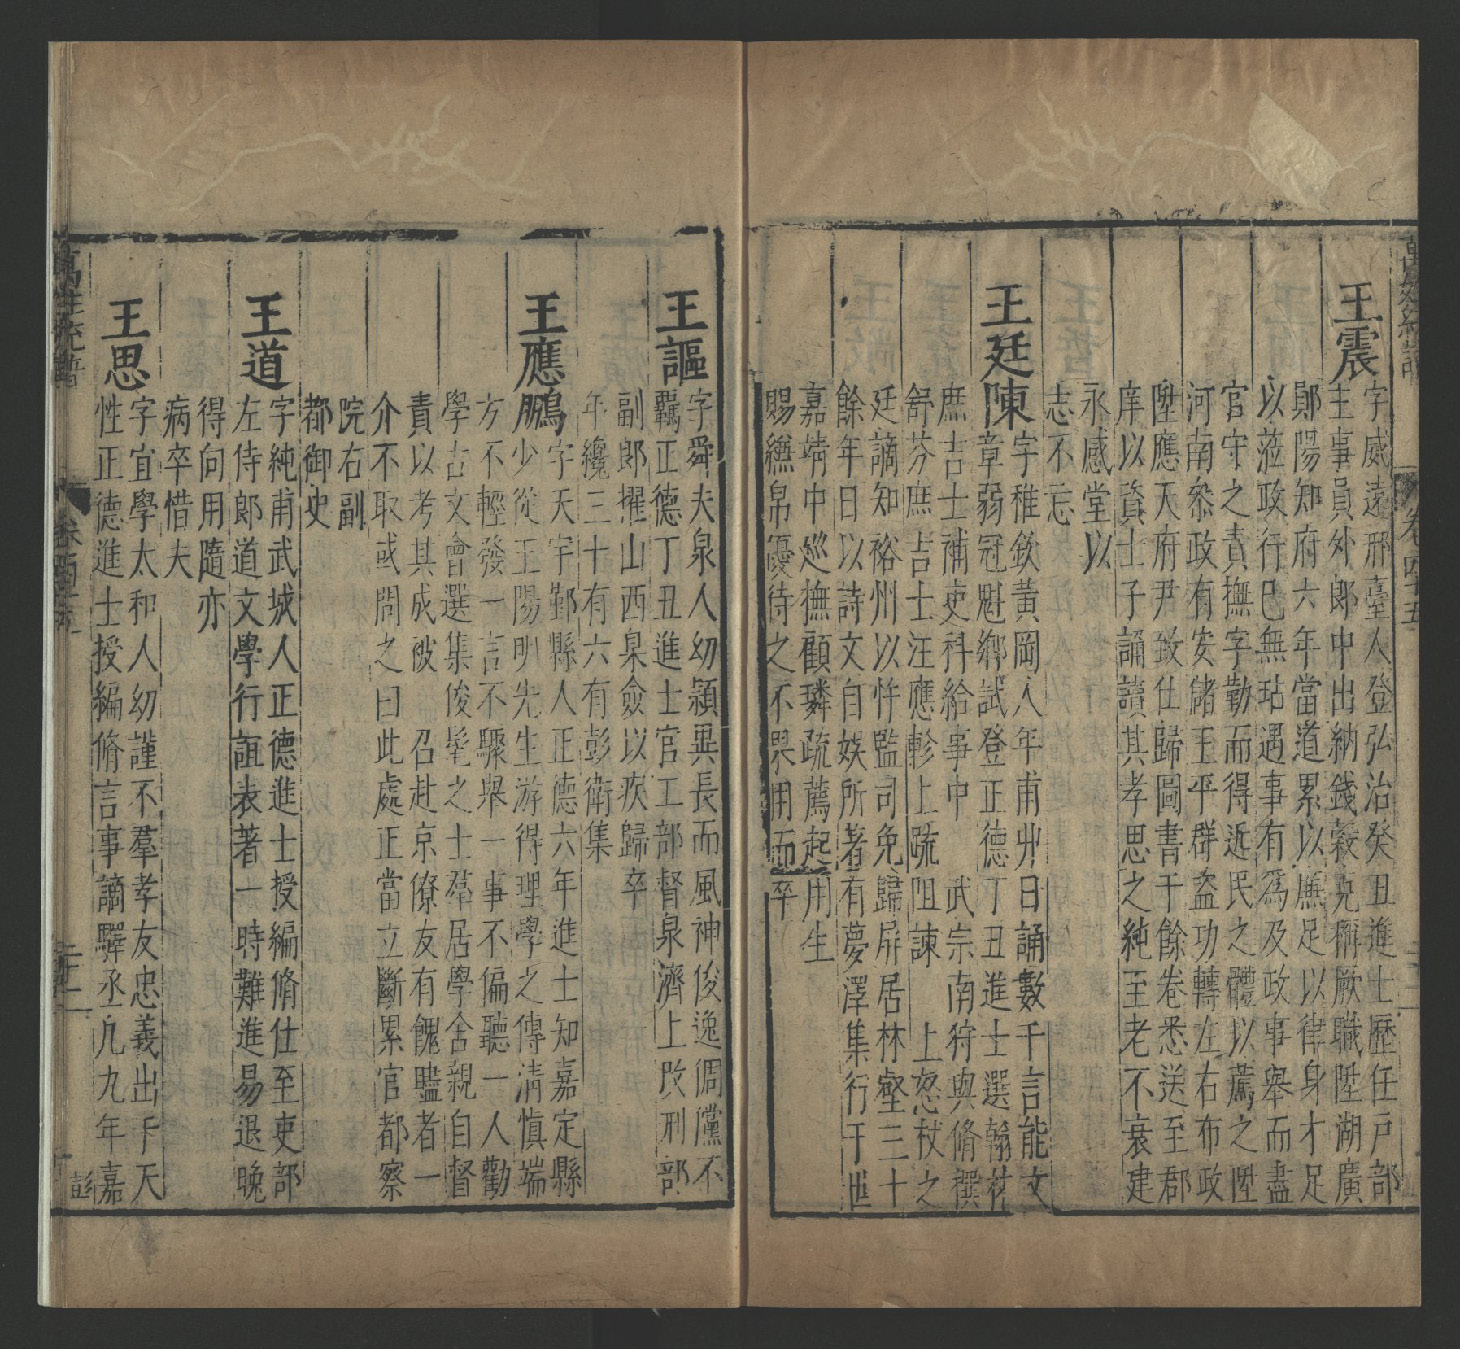 王震
字威遠邢臺人登弘治癸丑進士歷任戶部
主事員外郎中出納錢穀克稱厥職陞湖廣
鄖陽知府六年當道累以廉足以律身才足
以蒞政行已無玷遇事有為及政事舉而盡
官守之責撫字勤而得近民之體以薦之陞
河南叅政有安儲玉平群盜功轉左右布政
陞應天府尹致仕歸圖書千餘卷悉送至郡
庠以資士子誦讀其孝思之純至老不衰建
永感堂以
志不忘
王廷陳
字稚欽黃岡人年甫丱日誦數千言能文
章弱冠魁鄉試登正德丁丑進士選翰林
庶吉士補吏科給事中 武宗南狩與脩撰
舒芬庶吉士汪應軫上疏阻諫 上怒杖之
廷謫知裕州以忤監司免歸屏居林壑三十
餘年日以詩文自娛所著有夢澤集行于世
嘉靖中巡撫顧璘疏薦起用生
賜繒帛優待之不果用而卒
王謳
字舜夫泉人幼穎異長而風神俊逸倜儻不
羈正德丁丑進士官工部督泉濟上改刑部
副郎擢山西臬僉以疾歸卒
年纔三十有六有彭衙集
王應鵬
字天宇鄞縣人正德六年進士知嘉定縣
少從王陽明先生游得理學之傳清慎端
方不輕發一言不驟舉一事不偏聽一人勸
學古文會選集俊髦之士羣居學舍親自督
責以考其成被 召赴京僚友有餽贐者一
介不取或問之曰此處正當立斷累官都察
院右副
都御史
王道
字純甫武城人正德進士授編脩仕至吏部
左侍郎道文學行誼表著一時難進易退晚
得向用隨亦
病卒惜夫
王思
字宜學太和人幼謹不羣孝友忠義出于天
性正德進士授編脩言事謫驛丞凡九年嘉
萬姓統譜
卷四十五
彭